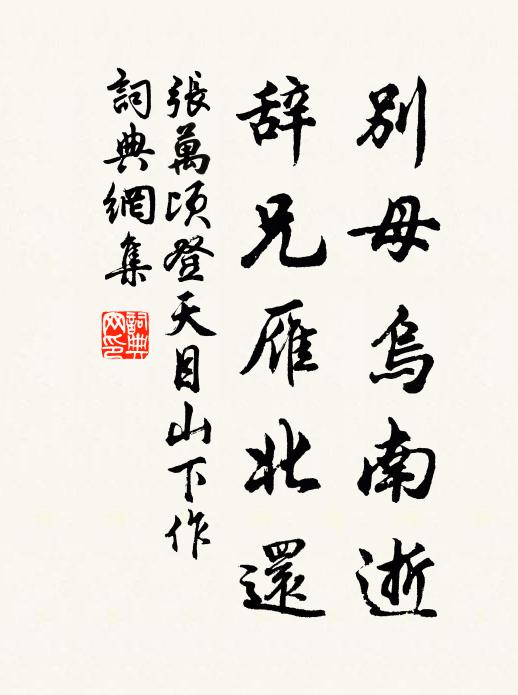 別母烏南逝
辞兄雁北還
張萬頃登天目山下作
詞典網集
詞典網印